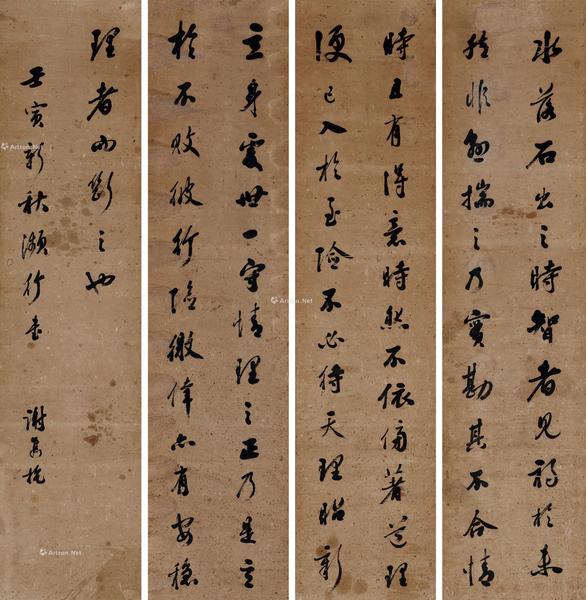 立身處世一守情理之正乃是立
於不敗彼行險徼倖亦有安穩
時且有得意時然不依傍著道理
便已入於至險不必待天理昭彰
水落石出之時智者見禍於未
然非揣之乃實勘其不合情
理者而斷之也
壬寅新秋瀕行書
謝
Artron.Net
Artron.Net
Artron.Net
Artron.Net